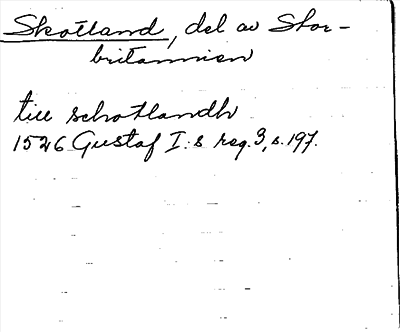 Skotland, del av Stor-
britannien
till schotlandh
1526 Gustaf I:s reg. 3, s. 197.